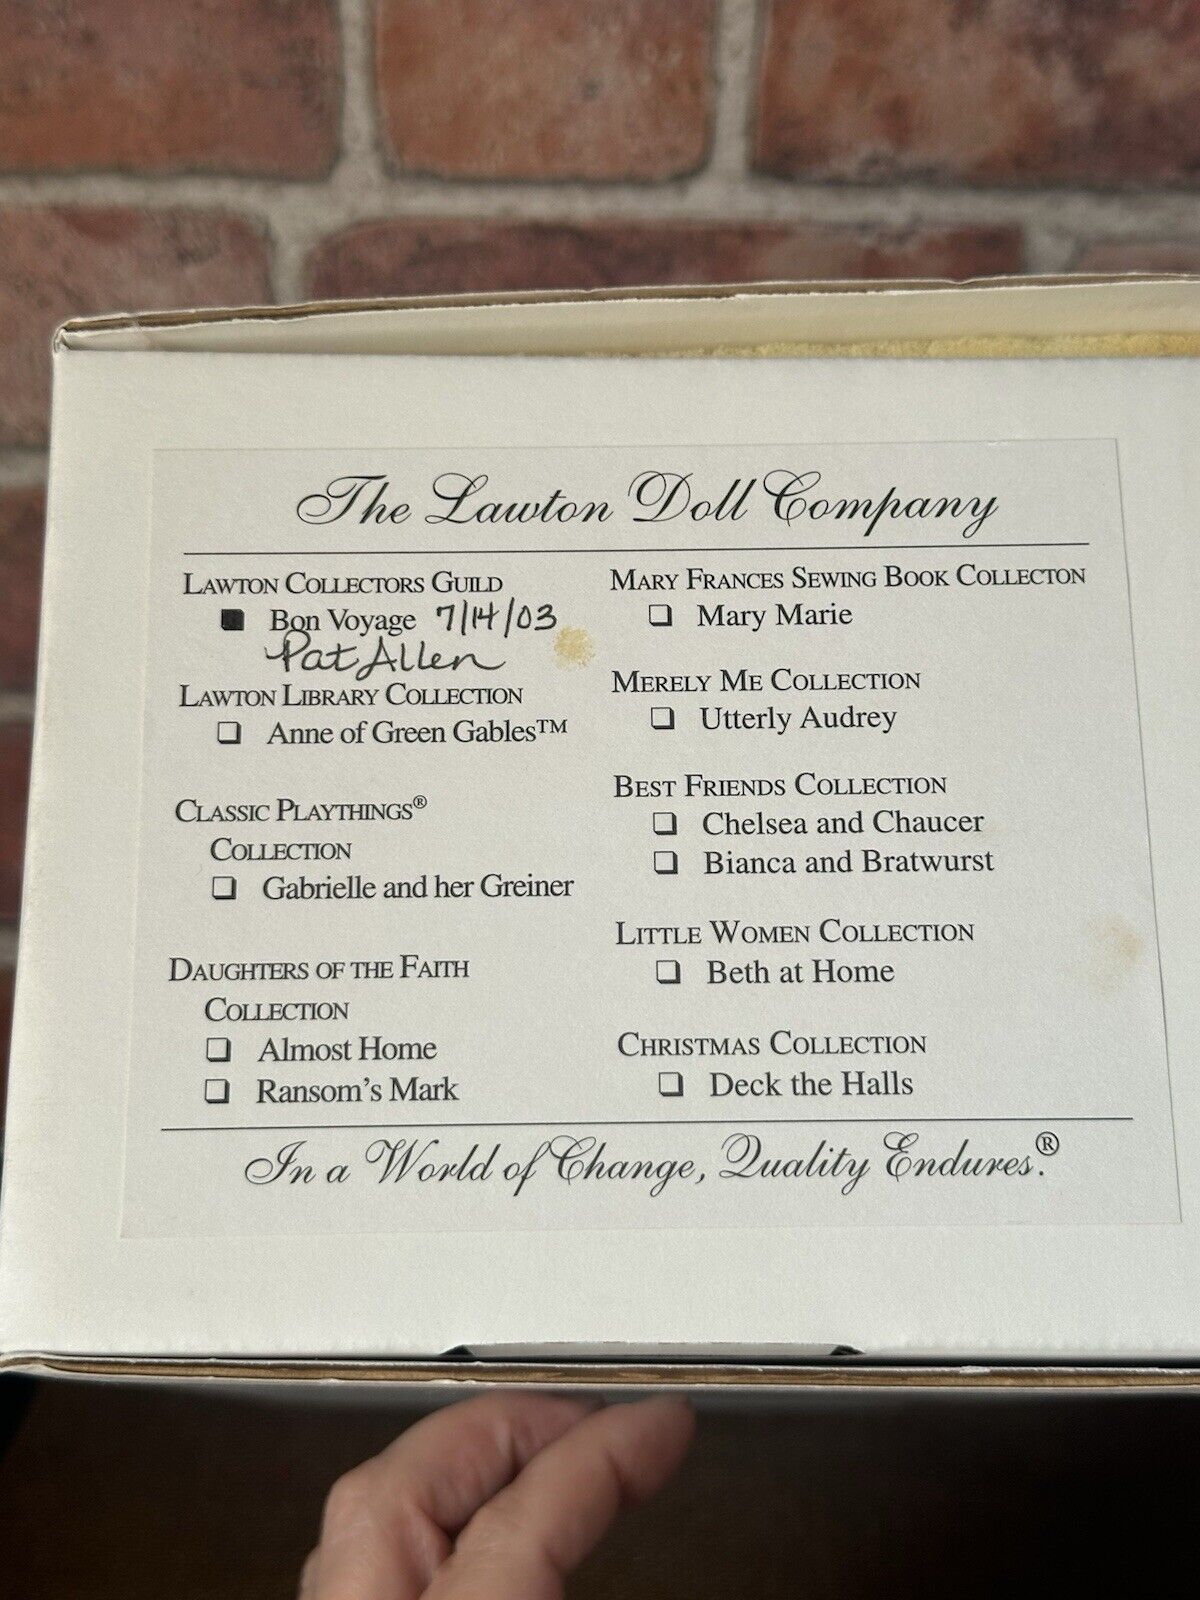 The Lawton Doll Company
LAWTON COLLECTORS GUILD
■ Bon Voyage 7/14/03
Pat Allen
LAWTON LIBRARY COLLECTION
❑ Anne of Green Gables™
CLASSIC PLAYTHINGS®
COLLECTION
❑ Gabrielle and her Greiner
DAUGHTERS OF THE FAITH
COLLECTION
❑ Almost Home
❑ Ransom's Mark
MARY FRANCES SEWING BOOK COLLECTON
❑ Mary Marie
MERELY ME COLLECTION
❑ Utterly Audrey
BEST FRIENDS COLLECTION
❑ Chelsea and Chaucer
❑ Bianca and Bratwurst
LITTLE WOMEN COLLECTION
❑ Beth at Home
CHRISTMAS COLLECTION
❑ Deck the Halls
In a World of Change, Quality Endures.®